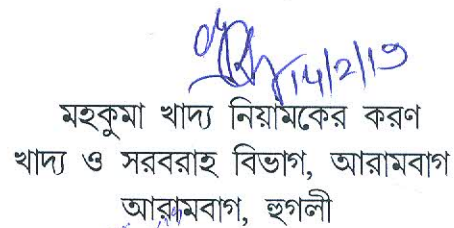 14/2/19
মহকুমা খাদ্য নিয়ামকের করণ
খাদ্য ও সরবরাহ বিভাগ, আরামবাগ
আরামবাগ, হুগলী